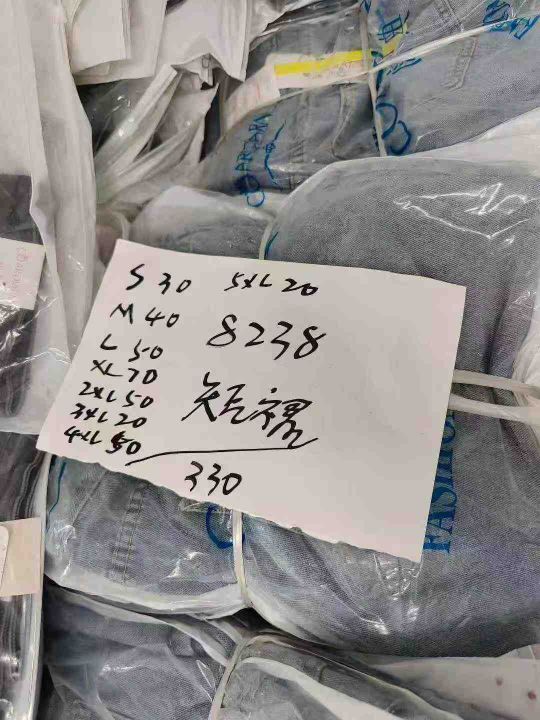 S 30 5XL 20
M 40
8238
L 50
XL 70
2XL 50
短
3XL 20
4XL 50
330